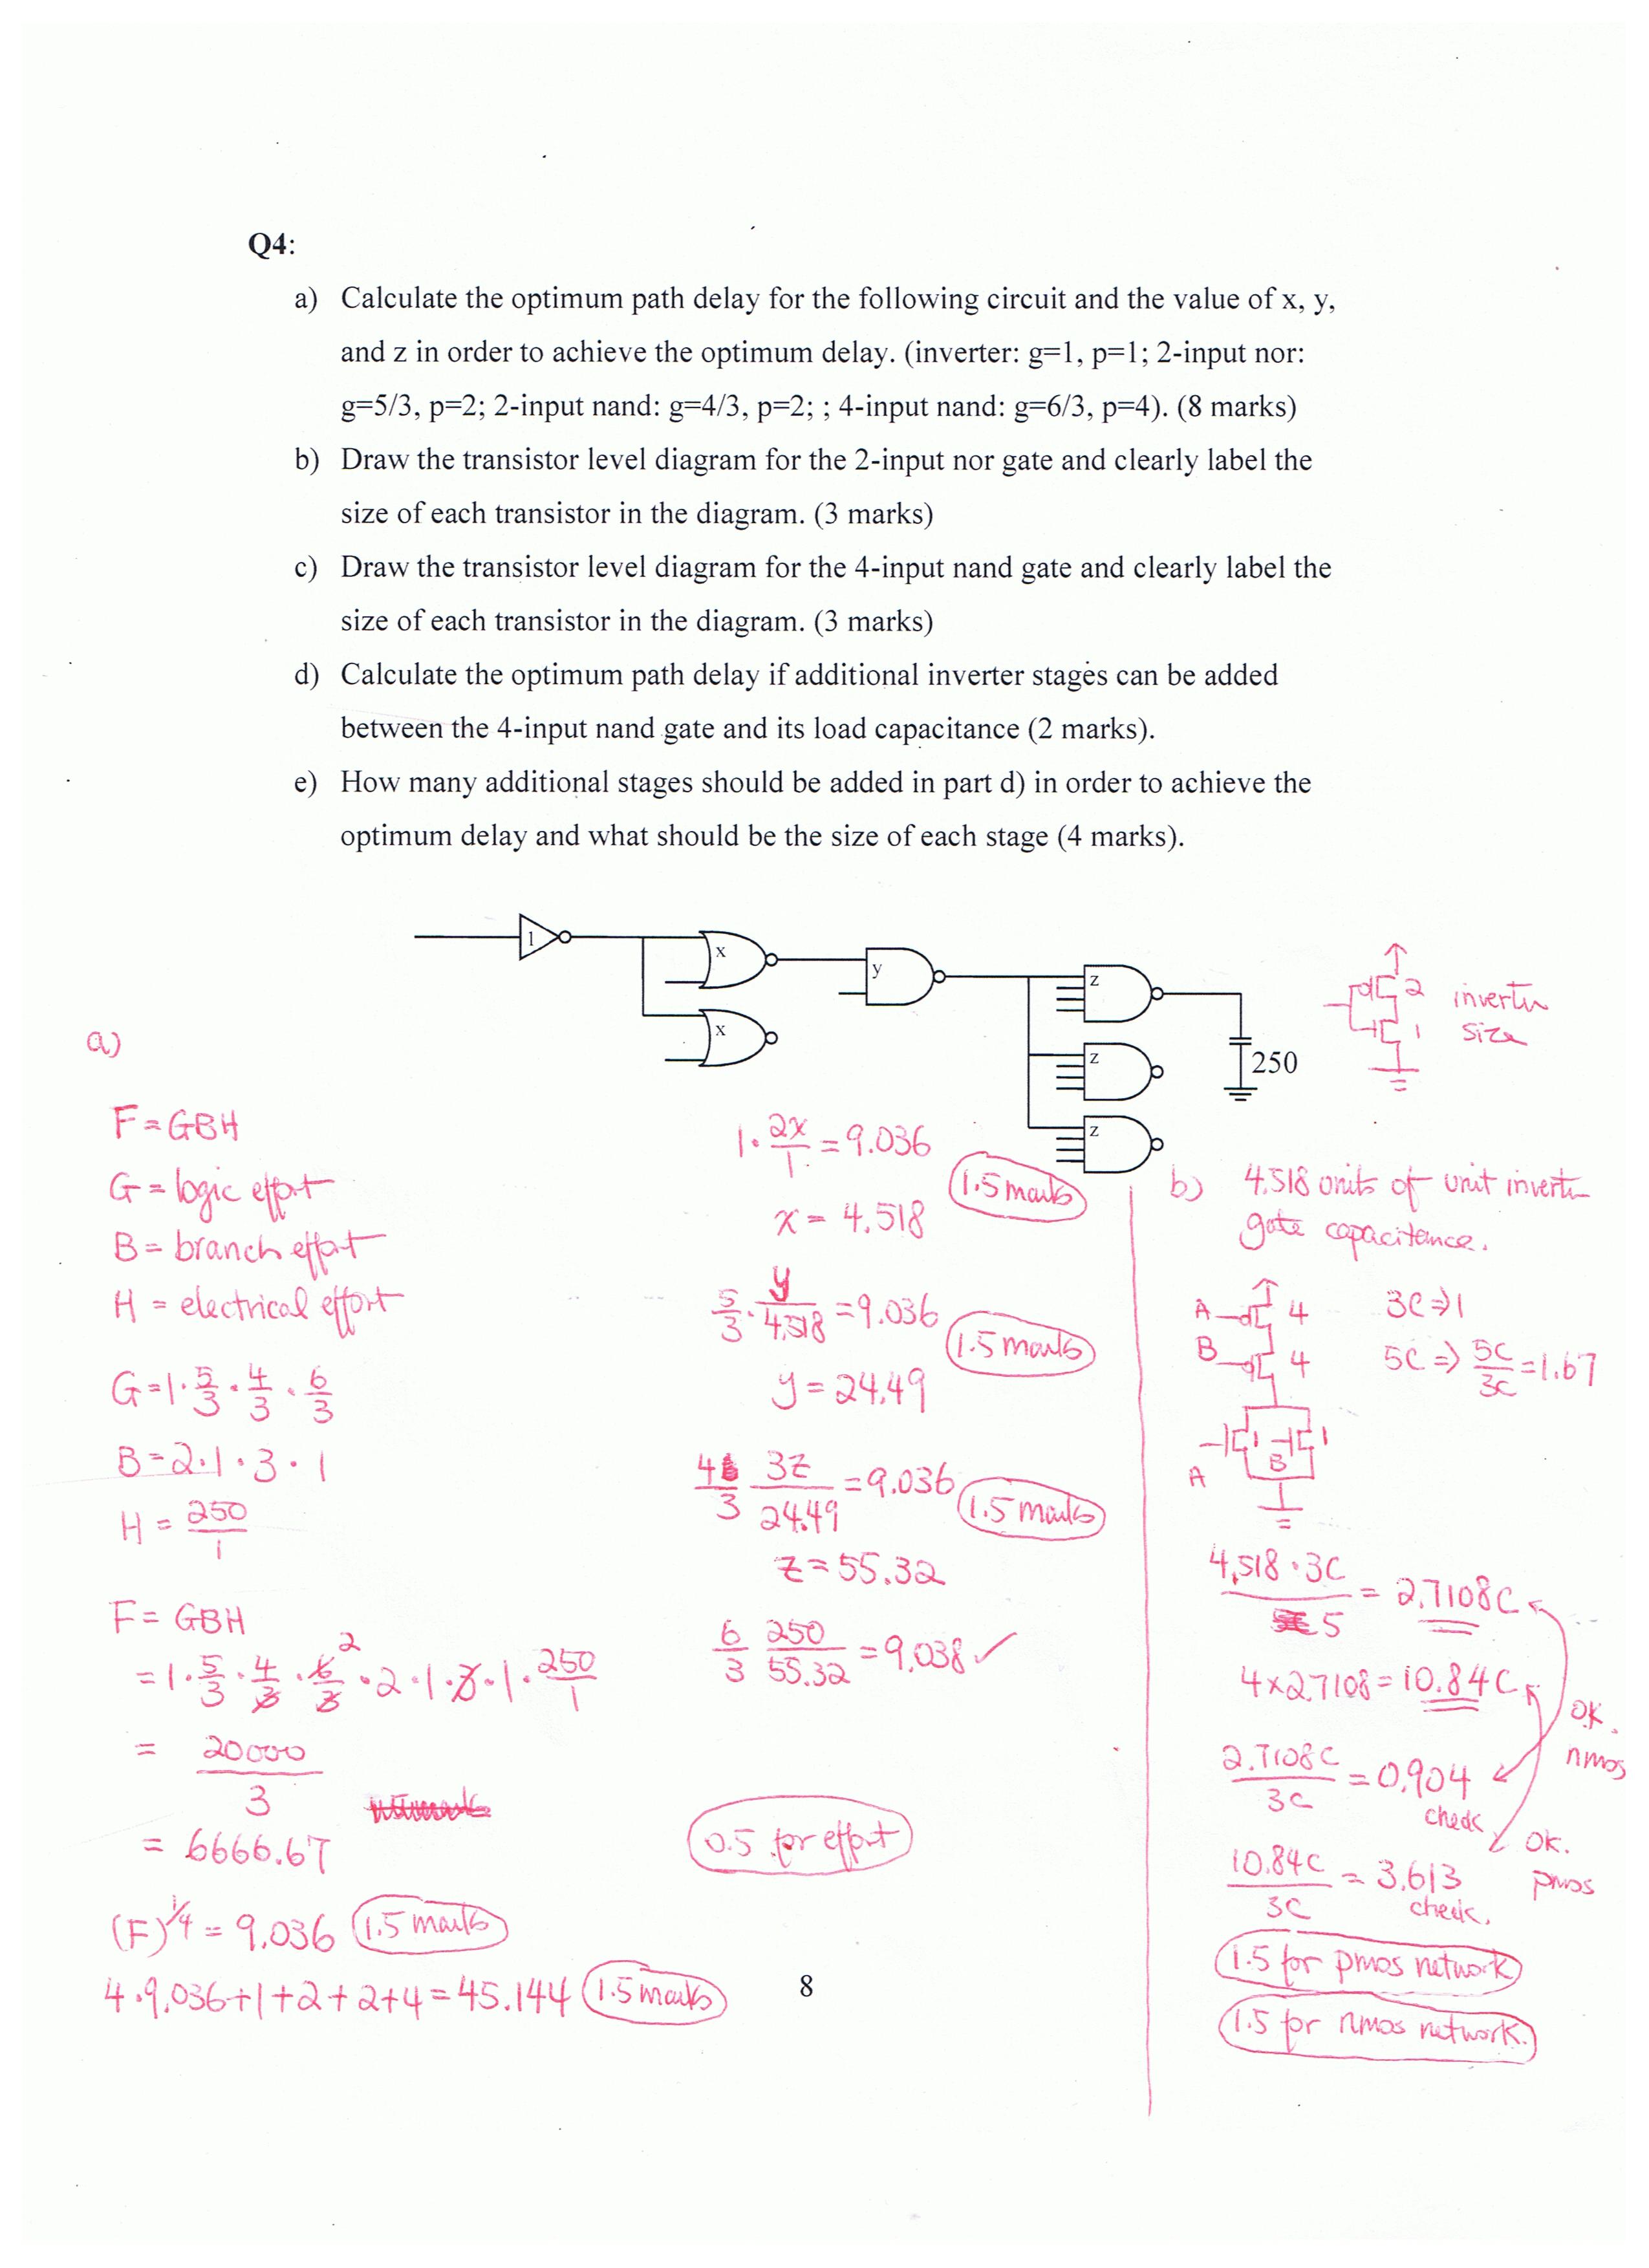 Q4:
a) Calculate the optimum path delay for the following circuit and the value of x, y,
and z in order to achieve the optimum delay. (inverter: g=1, p=1; 2-input nor:
g=5/3, p=2; 2-input nand: g=4/3, p=2; ; 4-input nand: g=6/3, p=4). (8 marks)
b) Draw the transistor level diagram for the 2-input nor gate and clearly label the
size of each transistor in the diagram. (3 marks)
c) Draw the transistor level diagram for the 4-input nand gate and clearly label the
size of each transistor in the diagram. (3 marks)
d) Calculate the optimum path delay if additional inverter stages can be added
between the 4-input nand gate and its load capacitance (2 marks).
e) How many additional stages should be added in part d) in order to achieve the
optimum delay and what should be the size of each stage (4 marks).
1
x
x
y
z
z
z
250
2
1
inverter
size
a)
F = GBH
G = logic effort
B = branch effort
H = electrical effort
G = 1 · 5/3 · 4/3 · 6/3
B = 2 · 1 · 3 · 1
H = 250/1
F = GBH
= 1 · 5/3 · 4/3 · 6/3 2 · 2 · 1 · 3 · 1 · 250/1
= 20000/3
= 6666.67
(F)^1/4 = 9.036 1.5 marks
4 · 9.036 + 1 + 2 + 2 + 4 = 45.144 1.5 marks
1 · 2x/1 = 9.036
x = 4.518
1.5 marks
5/3 · y/4.518 = 9.036
y = 24.49
1.5 marks
4/3 3z/24.49 = 9.036
z = 55.32
1.5 marks
6/3 250/55.32 = 9.038 ✓
0.5 for effort
b) 4.518 units of unit inverter
gate capacitance.
A 4
B 4
1 1
B
A
3C ⇒ 1
5C ⇒ 5C/3C = 1.67
4.518 · 3C/5 = 2.7108C
4 x 2.7108 = 10.84C
O.K.
nmos
2.7108C/3C = 0.904
check
OK.
pmos
10.84C/3C = 3.613
check.
1.5 for pmos network
1.5 for nmos network.
8